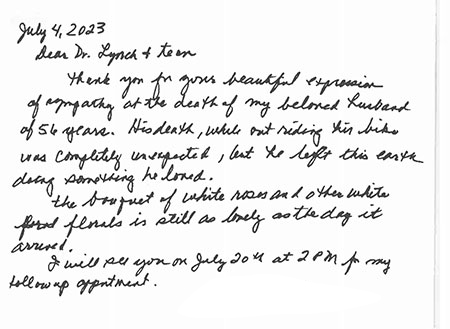 July 4, 2023
Dear Dr. Lynch + team
Thank you for your beautiful expression
of sympathy at the death of my beloved husband
of 56 years. His death, while out riding his bike
was completely unexpected, but he left this earth
doing something he loved.
The bouquet of white roses and other white
floral florals is still as lovely as the day it
arrived.
I will see you on July 20th at 2 PM for my
follow up appntment.